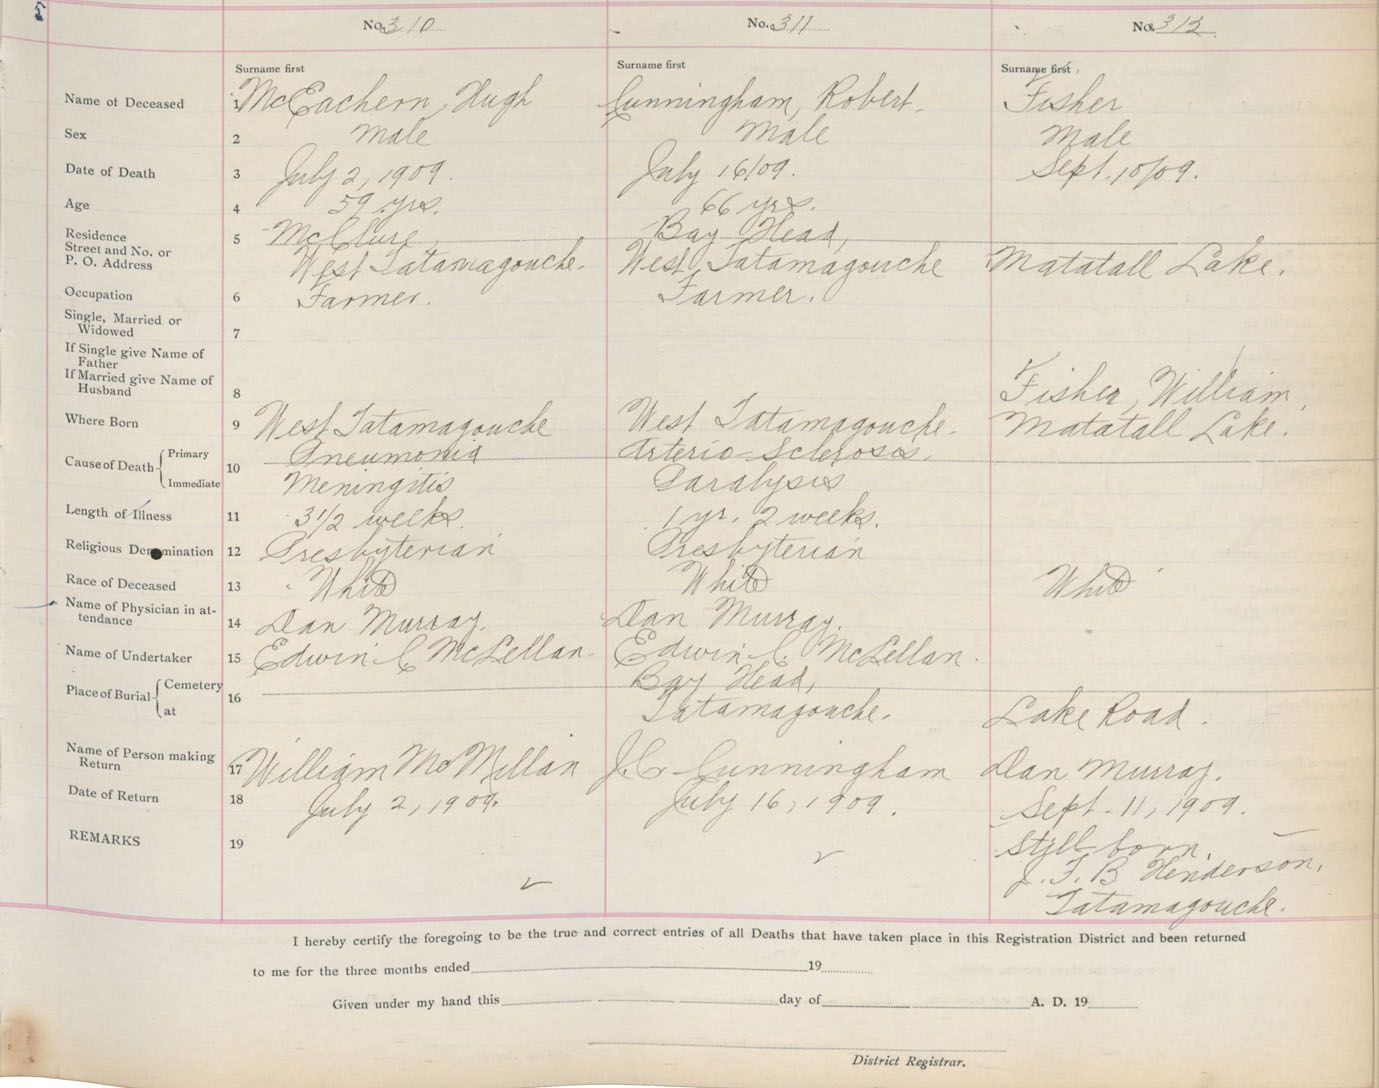 5
No. 310 No. 311 No. 312
Surname first Surname first Surname first
Name of Deceased 1 McEachern, Hugh Cunningham, Robert. Fisher
Sex 2 Male Male Male
Date of Death 3 July 2, 1909. July 16/09. Sept. 10/09.
Age 4 59 yrs. 66 yrs.
Residence 5 McClure Bay Head,
Street and No. or
P. O. Address West Tatamagouche. West Tatamagouche Matatall Lake.
Occupation 6 Farmer. Farmer.
Single, Married or
Widowed 7
If Single give Name of
Father
If Married give Name of
Husband 8 Fisher, William,
Where Born 9 West Tatamagouche West Tatamagouche. Matatall Lake.
Cause of Death Primary 10 Pneumonia Arterio-Sclerosis.
Immediate Meningitis Paralysis
Length of Illness 11 3 1/2 weeks. 1 yr. 2 weeks.
Religious Denomination 12 Presbyterian Presbyterian
Race of Deceased 13 White White White
Name of Physician in at-
tendance 14 Dan Murray. Dan Murray.
Name of Undertaker 15 Edwin C McLellan. Edwin C. McLellan.
Place of Burial Cemetery 16 Bay Head,
at Tatamagouche. Lake Road.
Name of Person making
Return 17 William McMillan J.C. Cunningham Dan Murray.
Date of Return 18 July 2, 1909. July 16, 1909. Sept. 11, 1909.
REMARKS 19 Still-born.
J. F. B Henderson,
Tatamagouche.
I hereby certify the foregoing to be the true and correct entries of all Deaths that have taken place in this Registration District and been returned
to me for the three months ended 19
Given under my hand this day of A. D. 19
District Registrar.